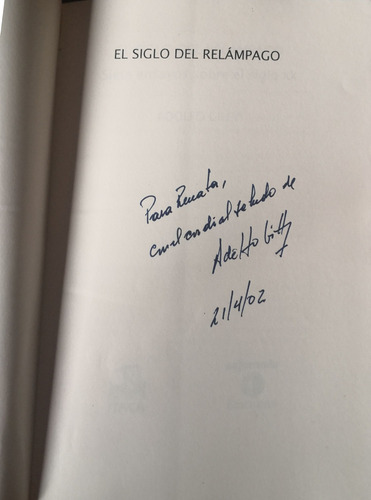 EL SIGLO DEL RELÁMPAGO
Para Renata,
con el cordial saludo de
Adolfo Gilly
21/4/02